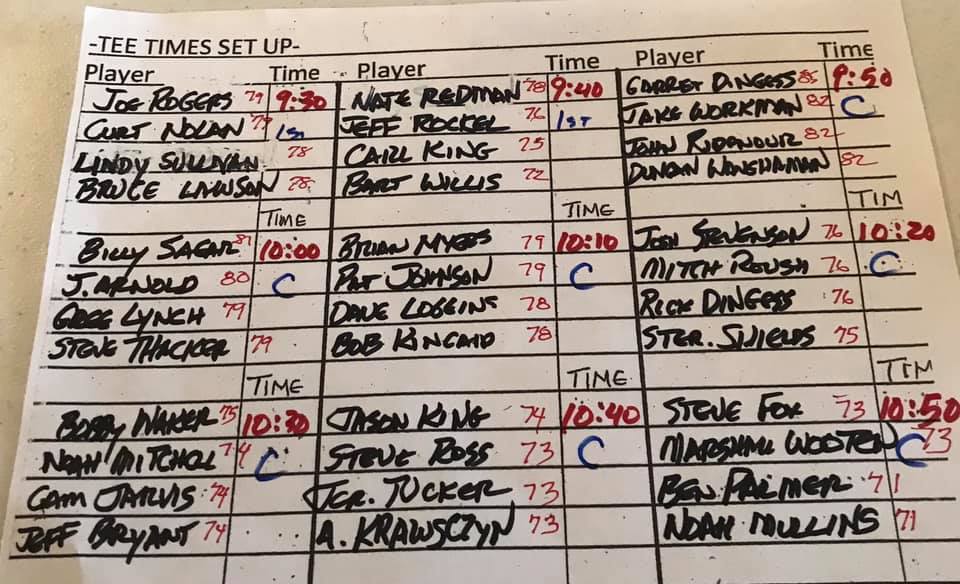 -TEE TIMES SET UP-
Player Time Player Time Player Time
JOE ROGERS 79 9:30 NATE REDMAN 78 9:40 GARRET DINGESS 85 9:50
CURT NOLAN 79 1st JEFF ROCKEL 76 1ST JAKE WORKMAN 82 C
LINDY SULLIVAN 78 CARL KING 75 JOHN RIDENOUR 82
BRUCE LAWSON 78 BART WILLIS 72 DUNCAN 82
TIME TIME TIM
BILLY SAGAR 81 10:00 BRIAN MYERS 79 10:10 JOSH STEVENSON 76 10:20
J. ARNOLD 80 C PAT JOHNSON 79 C MITCH ROUSH 76 C
GREG LYNCH 79 DAVE LOGGINS 78 RICK DINGESS 76
STEVE THACKER 79 BOB KINCAID 78 STER. SHIELDS 75
TIME TIME TIM
BOBBY WAKER 75 10:30 JASON KING 74 10:40 STEVE FOX 73 10:50
NOAH MITCHELL 74 C STEVE ROSS 73 C MARSHALL WOOTEN C 73
CAM JARVIS 74 JER. TUCKER 73 BEN PALMER 71
JEFF BRYANT 74 A. KRAWSCZYN 73 NOAH MULLINS 71